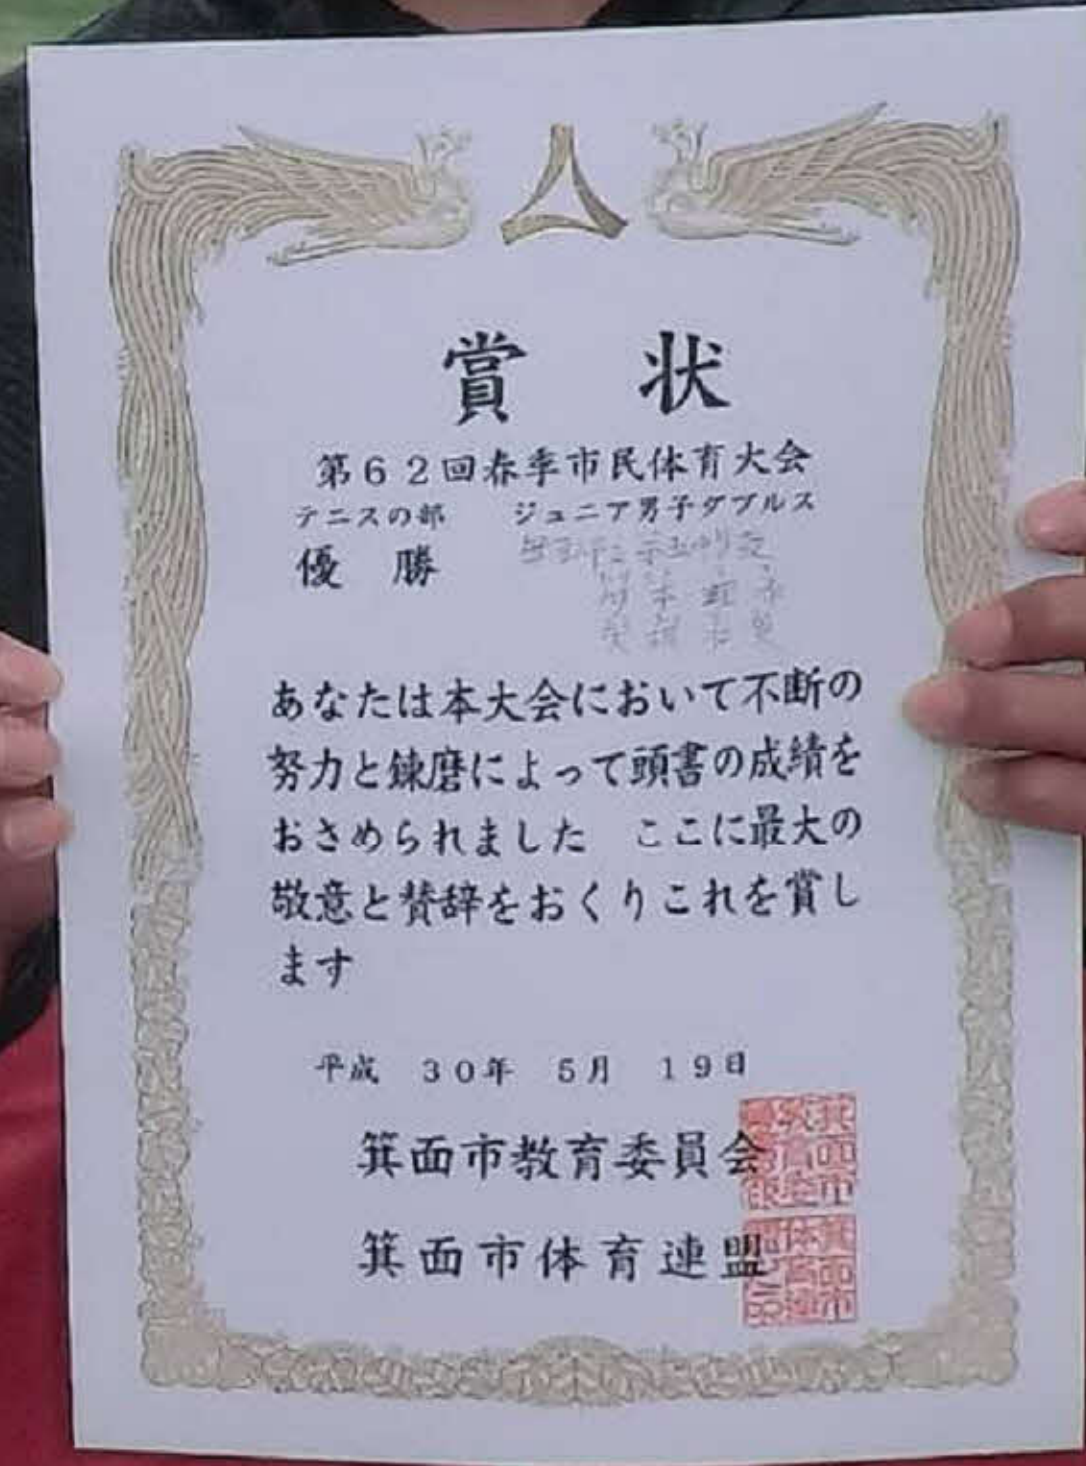 賞状
第62回春季市民体育大会
テニスの部 ジュニア男子ダブルス
優勝
あなたは本大会において不断の
努力と錬磨によって頭書の成績を
おさめられました ここに最大の
敬意と賛辞をおくりこれを賞し
ます
平成 30年 5月 19日
箕面市教育委員会
箕面市体育連盟